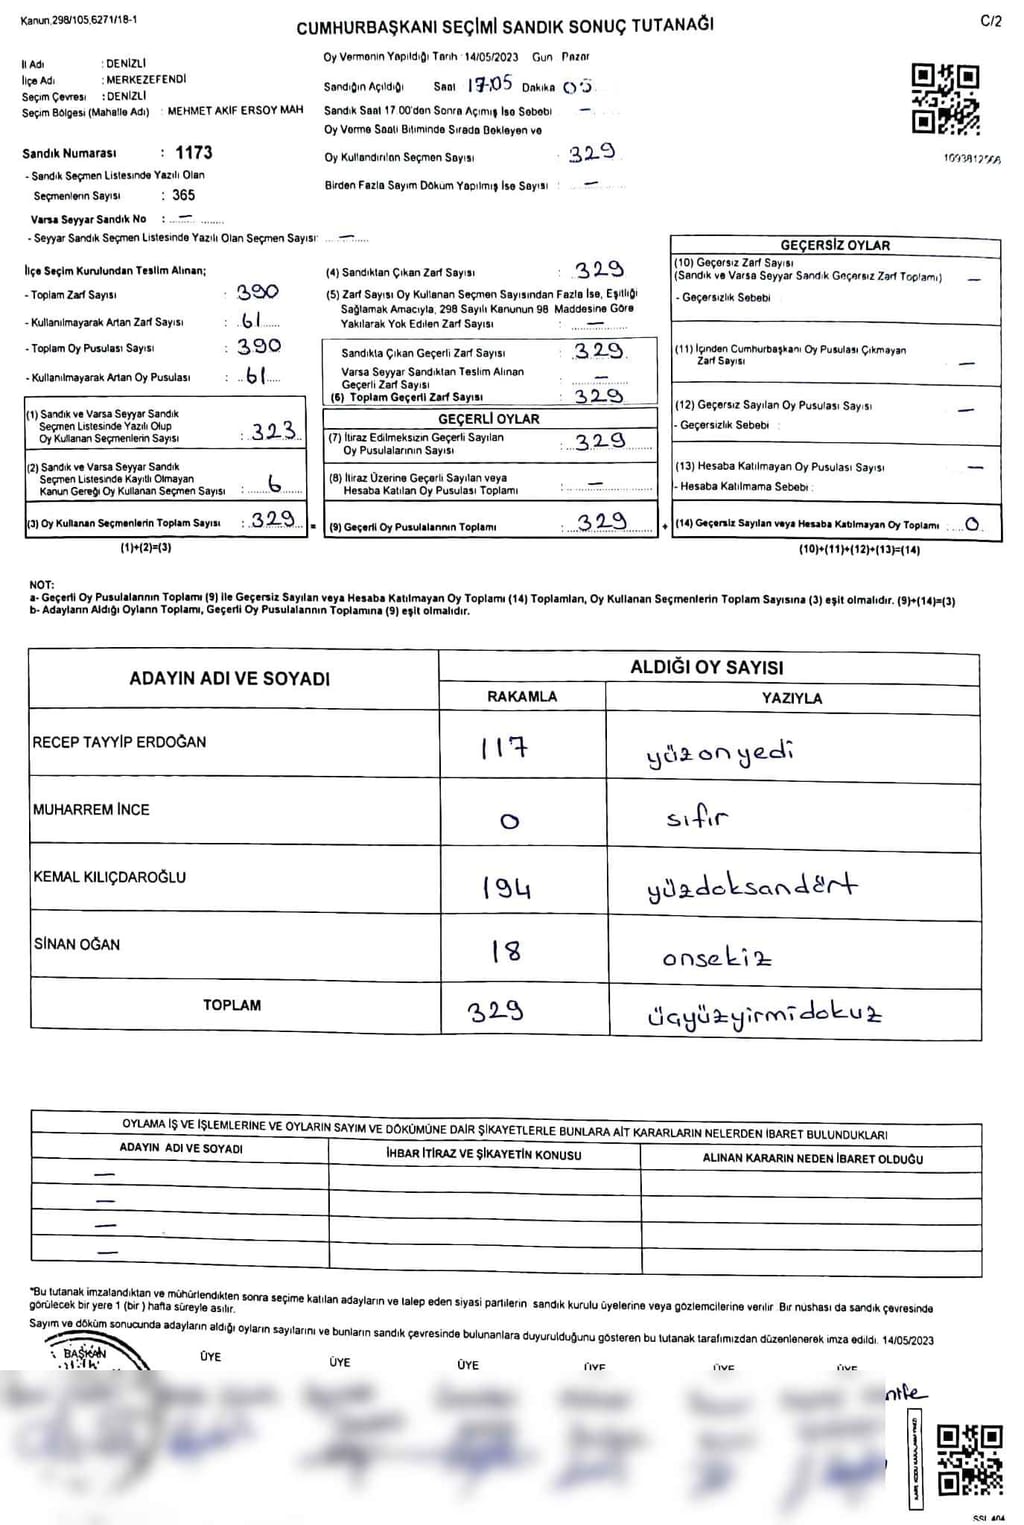 Kanun,298/105,6271/18-1
CUMHURBAŞKANI SEÇİMİ SANDIK SONUÇ TUTANAĞI
C/2
İl Adı : DENİZLİ
İlçe Adı : MERKEZEFENDİ
Seçim Çevresi : DENİZLİ
Seçim Bölgesi (Mahalle Adı) : MEHMET AKİF ERSOY MAH
Sandık Numarası : 1173
- Sandık Seçmen Listesinde Yazılı Olan
Seçmenlerin Sayısı : 365
Varsa Seyyar Sandık No : —
- Seyyar Sandık Seçmen Listesinde Yazılı Olan Seçmen Sayısı: —
Oy Vermenin Yapıldığı Tarih : 14/05/2023 Gün Pazar
Sandığın Açıldığı Saat 17.05 Dakika 05
Sandık Saat 17.00'den Sonra Açılmış İse Sebebi —
Oy Verme Saati Bitiminde Sırada Bekleyen ve
Oy Kullandırılan Seçmen Sayısı : 329
Birden Fazla Sayım Döküm Yapılmış İse Sayısı : —
1693812566
İlçe Seçim Kurulundan Teslim Alınan;
- Toplam Zarf Sayısı : 390
- Kullanılmayarak Artan Zarf Sayısı : 61
- Toplam Oy Pusulası Sayısı : 390
- Kullanılmayarak Artan Oy Pusulası : 61
(1) Sandık ve Varsa Seyyar Sandık
Seçmen Listesinde Yazılı Olup
Oy Kullanan Seçmenlerin Sayısı : 323
(2) Sandık ve Varsa Seyyar Sandık
Seçmen Listesinde Kayıtlı Olmayan
Kanun Gereği Oy Kullanan Seçmen Sayısı : 6
(3) Oy Kullanan Seçmenlerin Toplam Sayısı : 329 =
(1)+(2)=(3)
(4) Sandıktan Çıkan Zarf Sayısı : 329
(5) Zarf Sayısı Oy Kullanan Seçmen Sayısından Fazla İse, Eşitliği
Sağlamak Amacıyla, 298 Sayılı Kanunun 98 Maddesine Göre
Yakılarak Yok Edilen Zarf Sayısı : —
Sandıkta Çıkan Geçerli Zarf Sayısı : 329
Varsa Seyyar Sandıktan Teslim Alınan
Geçerli Zarf Sayısı : —
(6) Toplam Geçerli Zarf Sayısı : 329
GEÇERLİ OYLAR
(7) İtiraz Edilmeksizin Geçerli Sayılan
Oy Pusulalarının Sayısı : 329
(8) İtiraz Üzerine Geçerli Sayılan veya
Hesaba Katılan Oy Pusulası Toplamı : —
(9) Geçerli Oy Pusulalarının Toplamı : 329 +
GEÇERSİZ OYLAR
(10) Geçersiz Zarf Sayısı
(Sandık ve Varsa Seyyar Sandık Geçersiz Zarf Toplamı) —
- Geçersizlik Sebebi :
(11) İçinden Cumhurbaşkanı Oy Pusulası Çıkmayan
Zarf Sayısı —
(12) Geçersiz Sayılan Oy Pusulası Sayısı —
- Geçersizlik Sebebi :
(13) Hesaba Katılmayan Oy Pusulası Sayısı —
- Hesaba Katılmama Sebebi :
(14) Geçersiz Sayılan veya Hesaba Katılmayan Oy Toplamı : 0
(10)+(11)+(12)+(13)=(14)
NOT:
a- Geçerli Oy Pusulalarının Toplamı (9) ile Geçersiz Sayılan veya Hesaba Katılmayan Oy Toplamı (14) Toplamları, Oy Kullanan Seçmenlerin Toplam Sayısına (3) eşit olmalıdır. (9)+(14)=(3)
b- Adayların Aldığı Oyların Toplamı, Geçerli Oy Pusulalarının Toplamına (9) eşit olmalıdır.
ADAYIN ADI VE SOYADI
ALDIĞI OY SAYISI
RAKAMLA YAZIYLA
RECEP TAYYİP ERDOĞAN 117 yüzonyedi
MUHARREM İNCE 0 sıfır
KEMAL KILIÇDAROĞLU 194 yüzdoksandört
SİNAN OĞAN 18 onsekiz
TOPLAM 329 üçyüzyirmidokuz
OYLAMA İŞ VE İŞLEMLERİNE VE OYLARIN SAYIM VE DÖKÜMÜNE DAİR ŞİKAYETLERLE BUNLARA AİT KARARLARIN NELERDEN İBARET BULUNDUKLARI
ADAYIN ADI VE SOYADI İHBAR İTİRAZ VE ŞİKAYETİN KONUSU ALINAN KARARIN NEDEN İBARET OLDUĞU
—
—
—
—
*Bu tutanak imzalandıktan ve mühürlendikten sonra seçime katılan adayların ve talep eden siyasi partilerin sandık kurulu üyelerine veya gözlemcilerine verilir. Bir nushası da sandık çevresinde
görülecek bir yere 1 (bir ) hafta süreyle asılır.
Sayım ve döküm sonucunda adayların aldığı oyların sayılarını ve bunların sandık çevresinde bulunanlara duyurulduğunu gösteren bu tutanak tarafımızdan düzenlenerek imza edildi. 14/05/2023
BAŞKAN ÜYE ÜYE ÜYE ÜYE ÜYE ÜYE